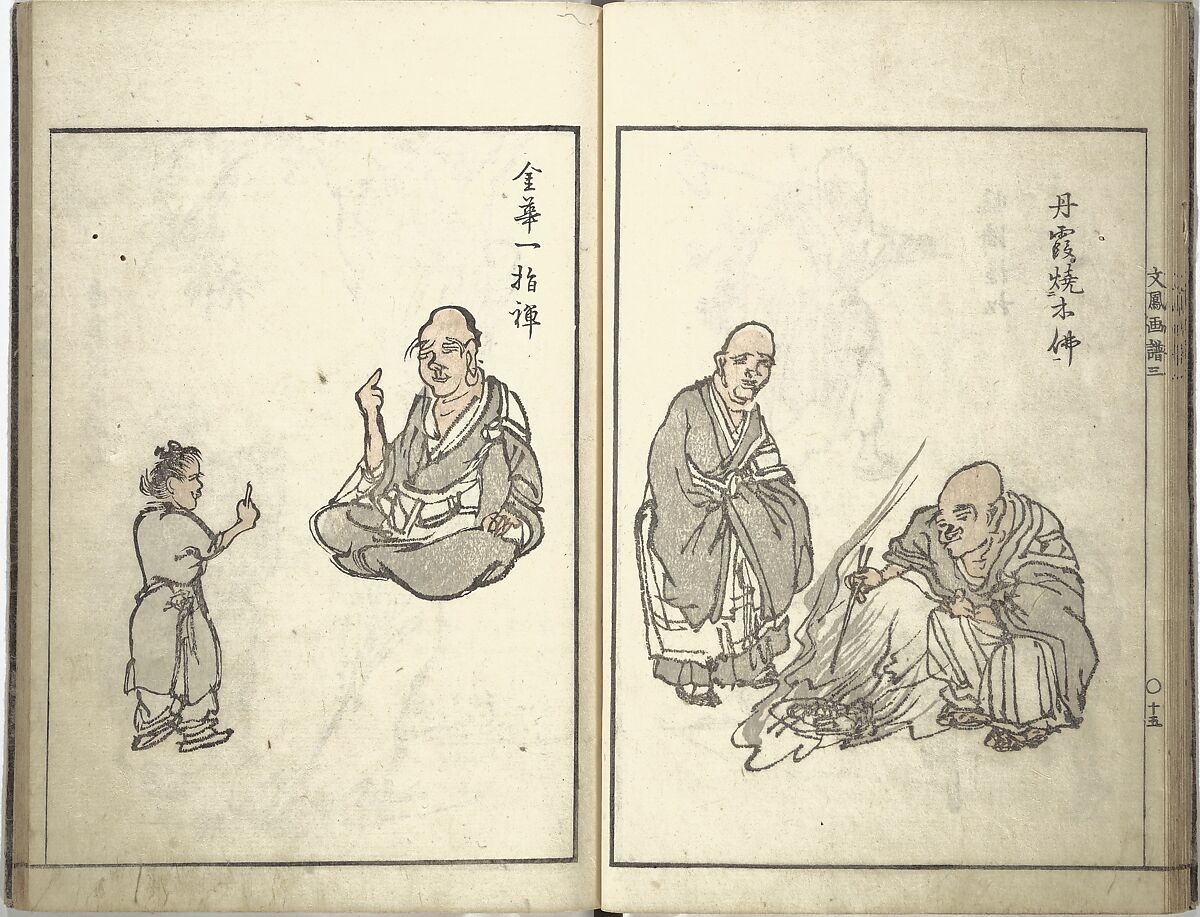 丹霞燒木佛
文鳳画譜三
〇十五
金華一指禅